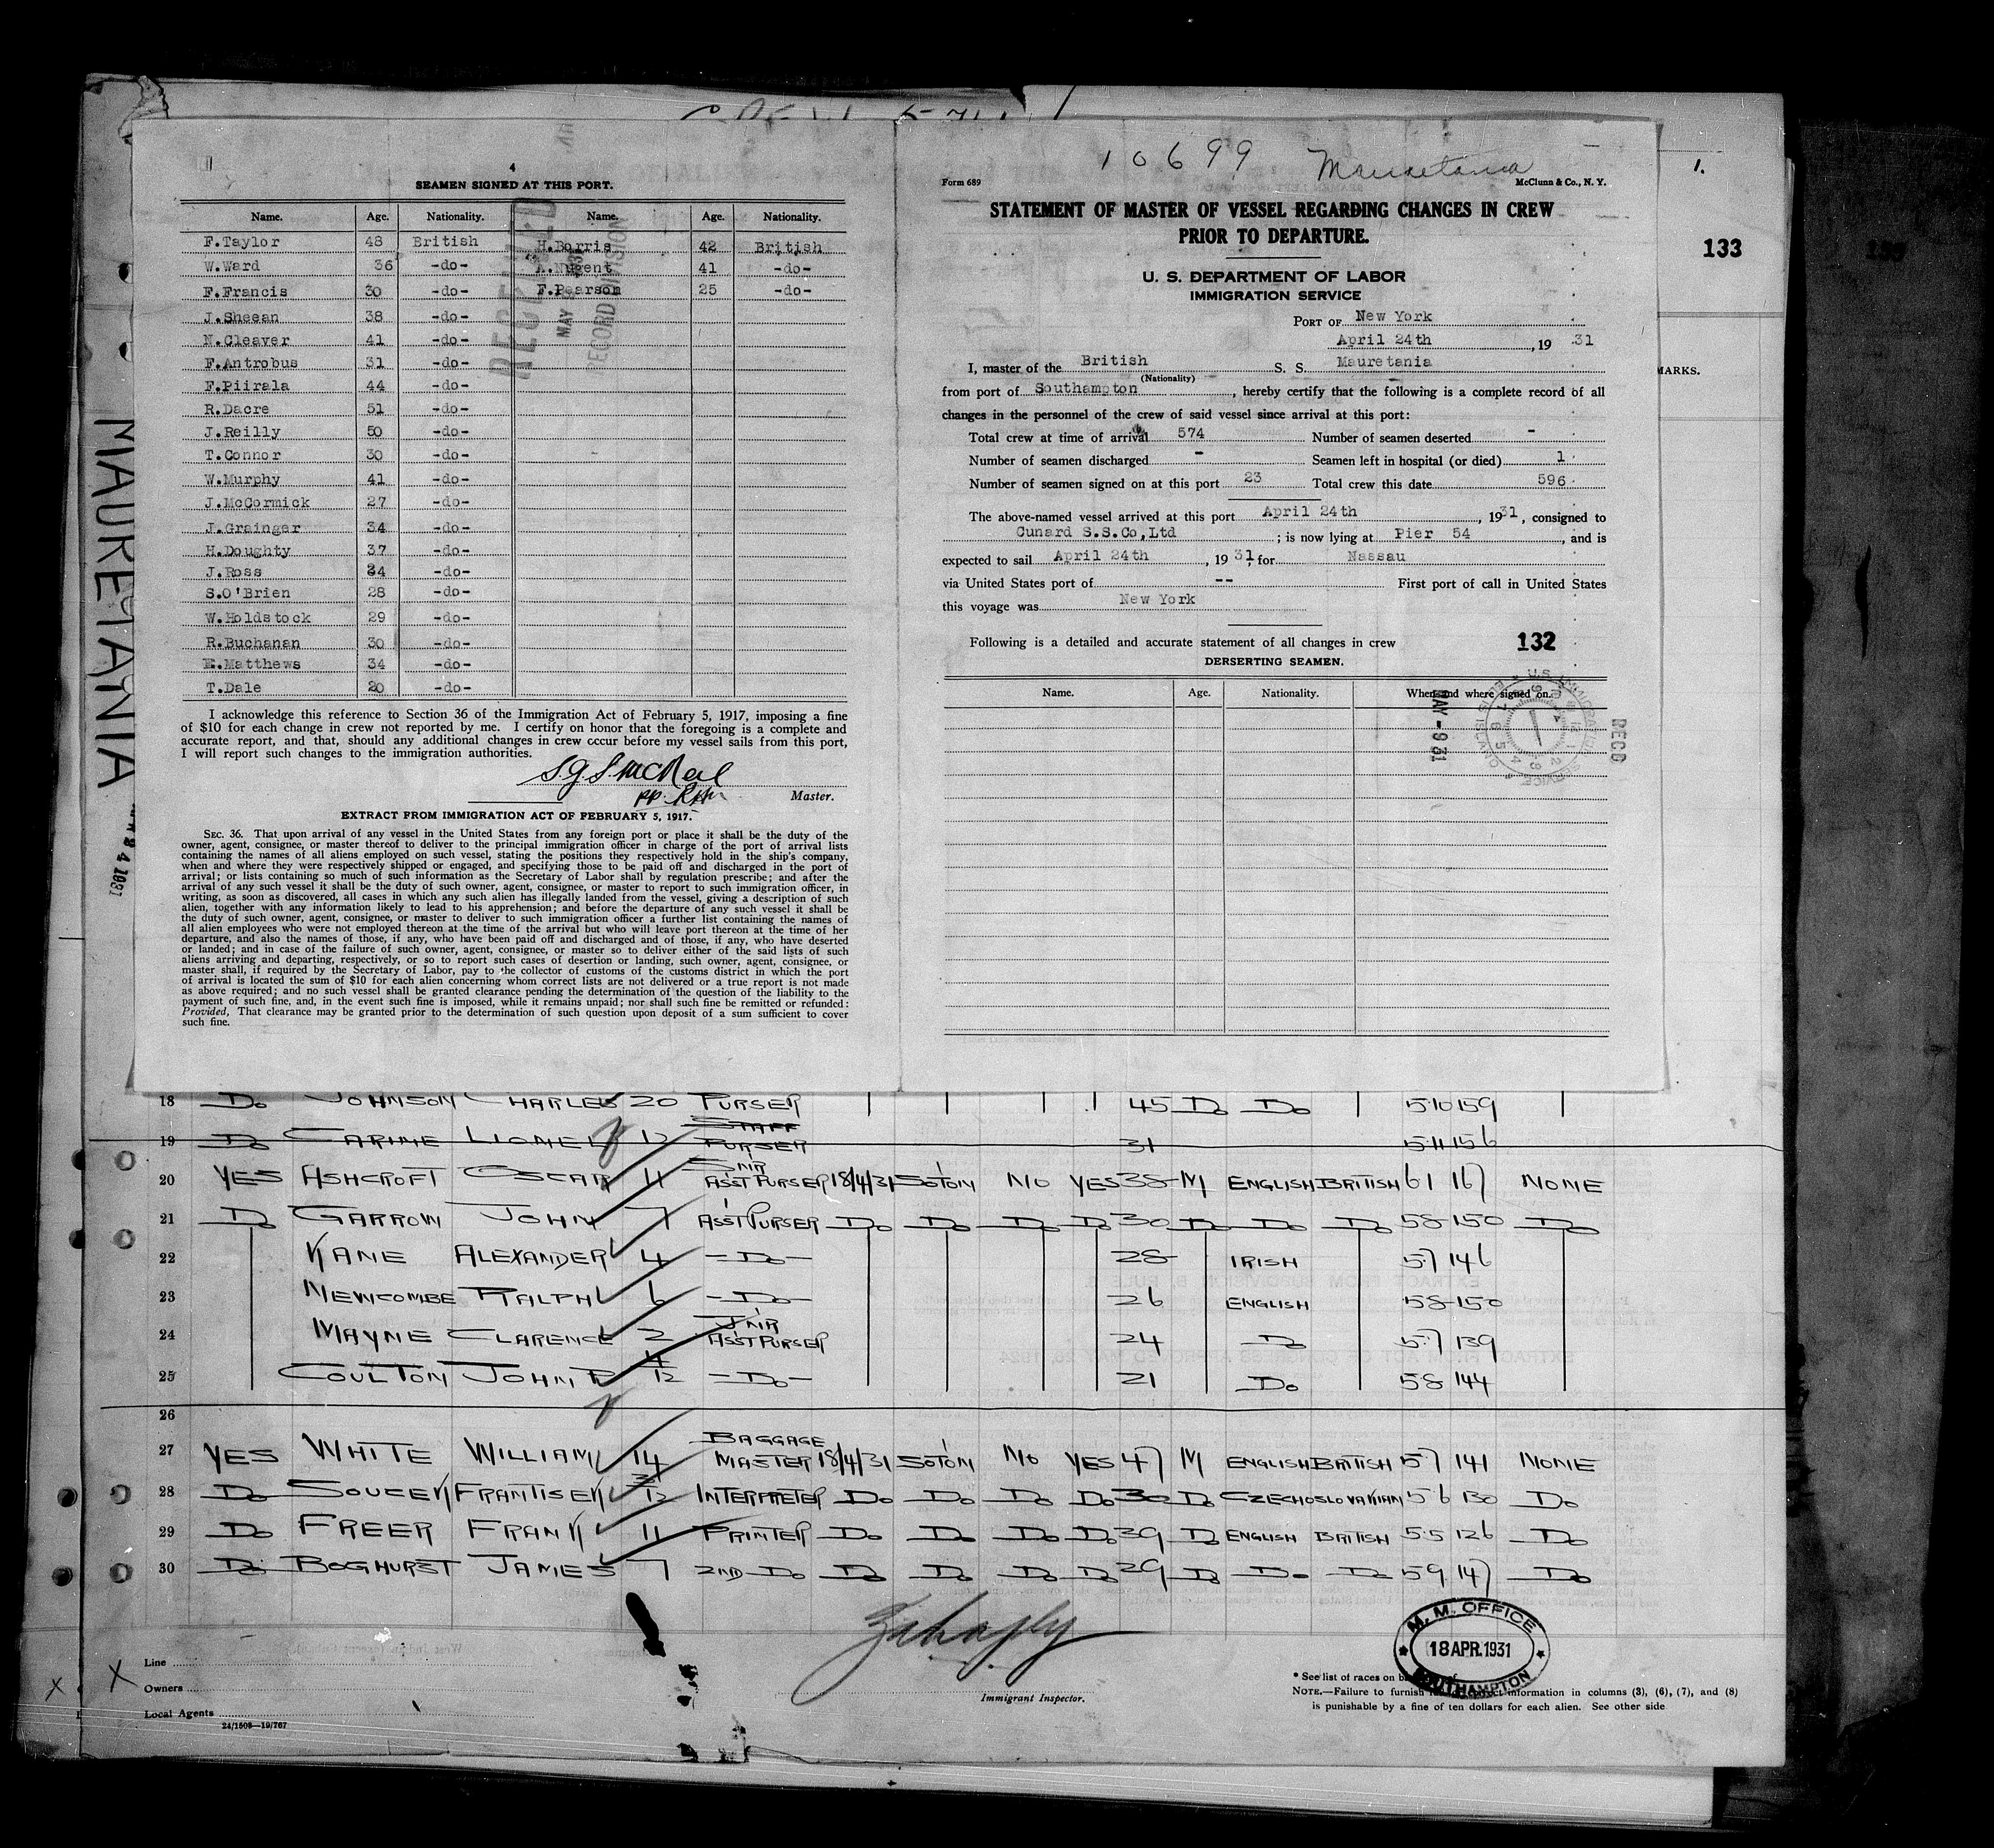 4
SEAMEN SIGNED AT THIS PORT.
Name. Age. Nationality. Name. Age. Nationality.
F.Taylor 48 British H.Borris 42 British
W.Ward 36 -do- A.Nugent 41 -do-
F.Francis 30 -do- F.Pearson 25 -do-
J.Sheean 38 -do-
N.Cleaver 41 -do-
F.Antrobus 31 -do-
F.Piirala 44 -do-
R.Dacre 51 -do-
J.Reilly 50 -do-
T.Connor 30 -do-
W.Murphy 41 -do-
J.McCormick 27 -do-
J.Grainger 34 -do-
H.Doughty 37 -do-
J.Ross 34 -do-
S.O'Brien 28 -do-
W.Holdstock 29 -do-
R.Buchanan 30 -do-
E.Matthews 34 -do-
T.Dale 20 -do-
RECEIVED
MAY
RECORD DIVISION
I acknowledge this reference to Section 36 of the Immigration Act of February 5, 1917, imposing a fine
of $10 for each change in crew not reported by me. I certify on honor that the foregoing is a complete and
accurate report, and that, should any additional changes in crew occur before my vessel sails from this port,
I will report such changes to the immigration authorities.
S.G.S. McNeil
pp. RHr Master.
EXTRACT FROM IMMIGRATION ACT OF FEBRUARY 5, 1917.
SEC. 36. That upon arrival of any vessel in the United States from any foreign port or place it shall be the duty of the
owner, agent, consignee, or master thereof to deliver to the principal immigration officer in charge of the port of arrival lists
containing the names of all aliens employed on such vessel, stating the positions they respectively hold in the ship's company,
when and where they were respectively shipped or engaged, and specifying those to be paid off and discharged in the port of
arrival; or lists containing so much of such information as the Secretary of Labor shall by regulation prescribe; and after the
arrival of any such vessel it shall be the duty of such owner, agent, consignee, or master to report to such immigration officer, in
writing, as soon as discovered, all cases in which any such alien has illegally landed from the vessel, giving a description of such
alien, together with any information likely to lead to his apprehension; and before the departure of any such vessel it shall be
the duty of such owner, agent, consignee, or master to deliver to such immigration officer a further list containing the names of
all alien employees who were not employed thereon at the time of the arrival but who will leave port thereon at the time of her
departure, and also the names of those, if any, who have been paid off and discharged and of those, if any, who have deserted
or landed; and in case of the failure of such owner, agent, consignee, or master so to deliver either of the said lists of such
aliens arriving and departing, respectively, or so to report such cases of desertion or landing, such owner, agent, consignee, or
master shall, if required by the Secretary of Labor, pay to the collector of customs of the customs district in which the port
of arrival is located the sum of $10 for each alien concerning whom correct lists are not delivered or a true report is not made
as above required; and no such vessel shall be granted clearance pending the determination of the question of the liability to the
payment of such fine, and, in the event such fine is imposed, while it remains unpaid; nor shall such fine be remitted or refunded:
Provided, That clearance may be granted prior to the determination of such question upon deposit of a sum sufficient to cover
such fine.
10699 Mauretania
Form 689 McClunn & Co., N. Y.
STATEMENT OF MASTER OF VESSEL REGARDING CHANGES IN CREW
PRIOR TO DEPARTURE.
U. S. DEPARTMENT OF LABOR
IMMIGRATION SERVICE
PORT OF New York
April 24th, 19 31
I, master of the British S. S. Mauretania
(Nationality)
from port of Southampton, hereby certify that the following is a complete record of all
changes in the personnel of the crew of said vessel since arrival at this port:
Total crew at time of arrival 574 Number of seamen deserted -
Number of seamen discharged - Seamen left in hospital (or died) 1
Number of seamen signed on at this port 23 Total crew this date 596
The above-named vessel arrived at this port April 24th, 1931, consigned to
Cunard S.S.Co,Ltd; is now lying at Pier 54, and is
expected to sail April 24th, 19 31, for Nassau
via United States port of -- First port of call in United States
this voyage was New York
Following is a detailed and accurate statement of all changes in crew 132
DERSERTING SEAMEN.
Name. Age. Nationality. When and where signed on.
MAY -9 31
RECD
U.S. IMMIGRATION SERVICE ELLIS ISLAND
1.
133
MARKS.
MAURETANIA
18 Do JOHNSON CHARLES 20 PURSER 45 Do Do 5·10 159
19 Do CARINE LIONEL 12 STAFF PURSER 31 5·11 156
20 YES ASHCROFT OSCAR 11 SNR ASST PURSER 18/4/31 SOTON NO YES 38 M ENGLISH BRITISH 61 167 NONE
21 Do GARROW JOHN 7 ASST PURSER Do Do Do Do 30 Do Do Do 58 150 Do
22 KANE ALEXANDER 4 -Do- 28 IRISH 5·7 146
23 NEWCOMBE RALPH 6 -Do- 26 ENGLISH 58 150
24 MAYNE CLARENCE 2 JNR ASST PURSER 24 Do 5·7 139
25 COULTON JOHN R 4/12 -Do- 21 Do 58 144
26
27 YES WHITE WILLIAM 14 BAGGAGE MASTER 18/4/31 SOTON NO YES 47 M ENGLISH BRITISH 57 141 NONE
28 Do SOUCEK FRANTISEK 3/12 INTERPRETER Do Do Do Do 30 Do CZECHOSLOVAKIAN 56 130 Do
29 Do FREER FRANK 11 PRINTER Do Do Do Do 39 Do ENGLISH BRITISH 5·5 126 Do
30 Do BOGHURST JAMES 7 2ND Do Do Do Do Do 29 Do Do Do 59 147 Do
M. M. OFFICE
18 APR. 1931
SOUTHAMPTON
Line
Owners
Local Agents
24/1508—19/767
Immigrant Inspector.
* See list of races on
NOTE.—Failure to furnish information in columns (3), (6), (7), and (8)
is punishable by a fine of ten dollars for each alien. See other side